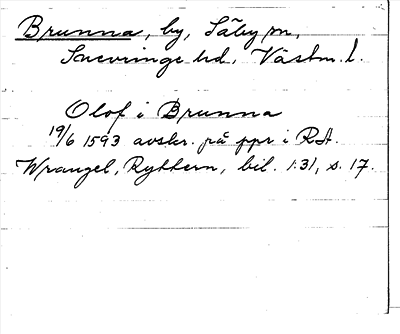 Brunna, by, Säby sn,
Snevringe hd, Västm. l.
Olof i Brunna
19/6 1593 avskr. på ppr i RA.
Wrangel, Ryttern, bil. 1:31, s. 17.